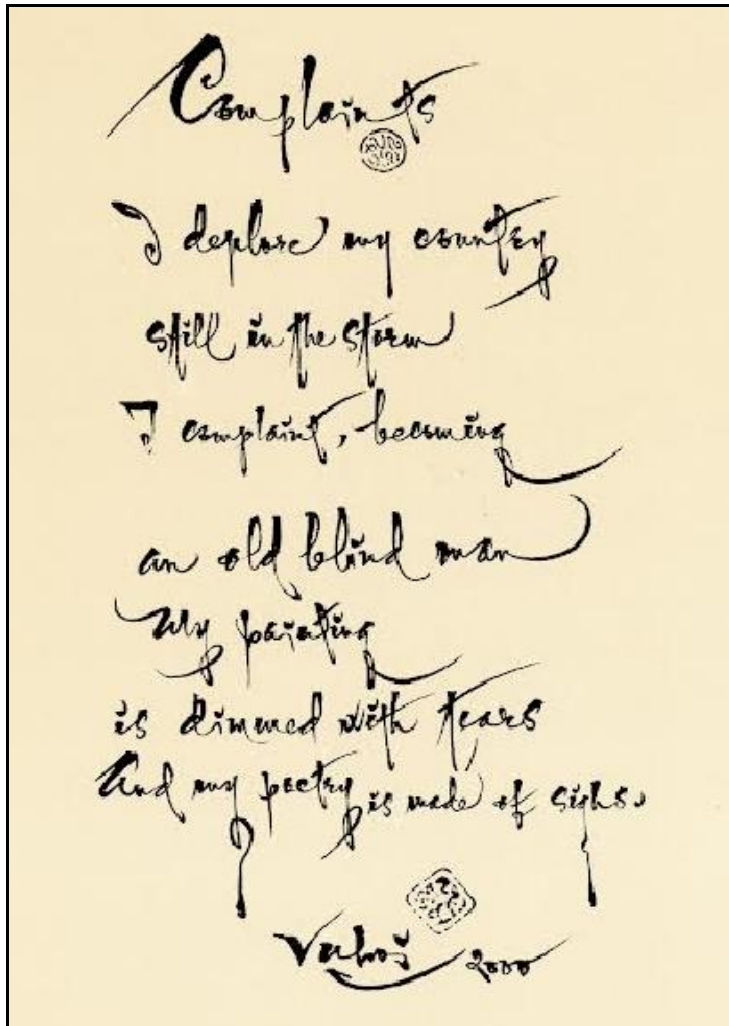 Complaints
I deplore my country
still in the storm
I complaint, becoming
an old blind man
My painting
is dimmed with tears
And my poetry is made of sighs.
Vuhoi 2000